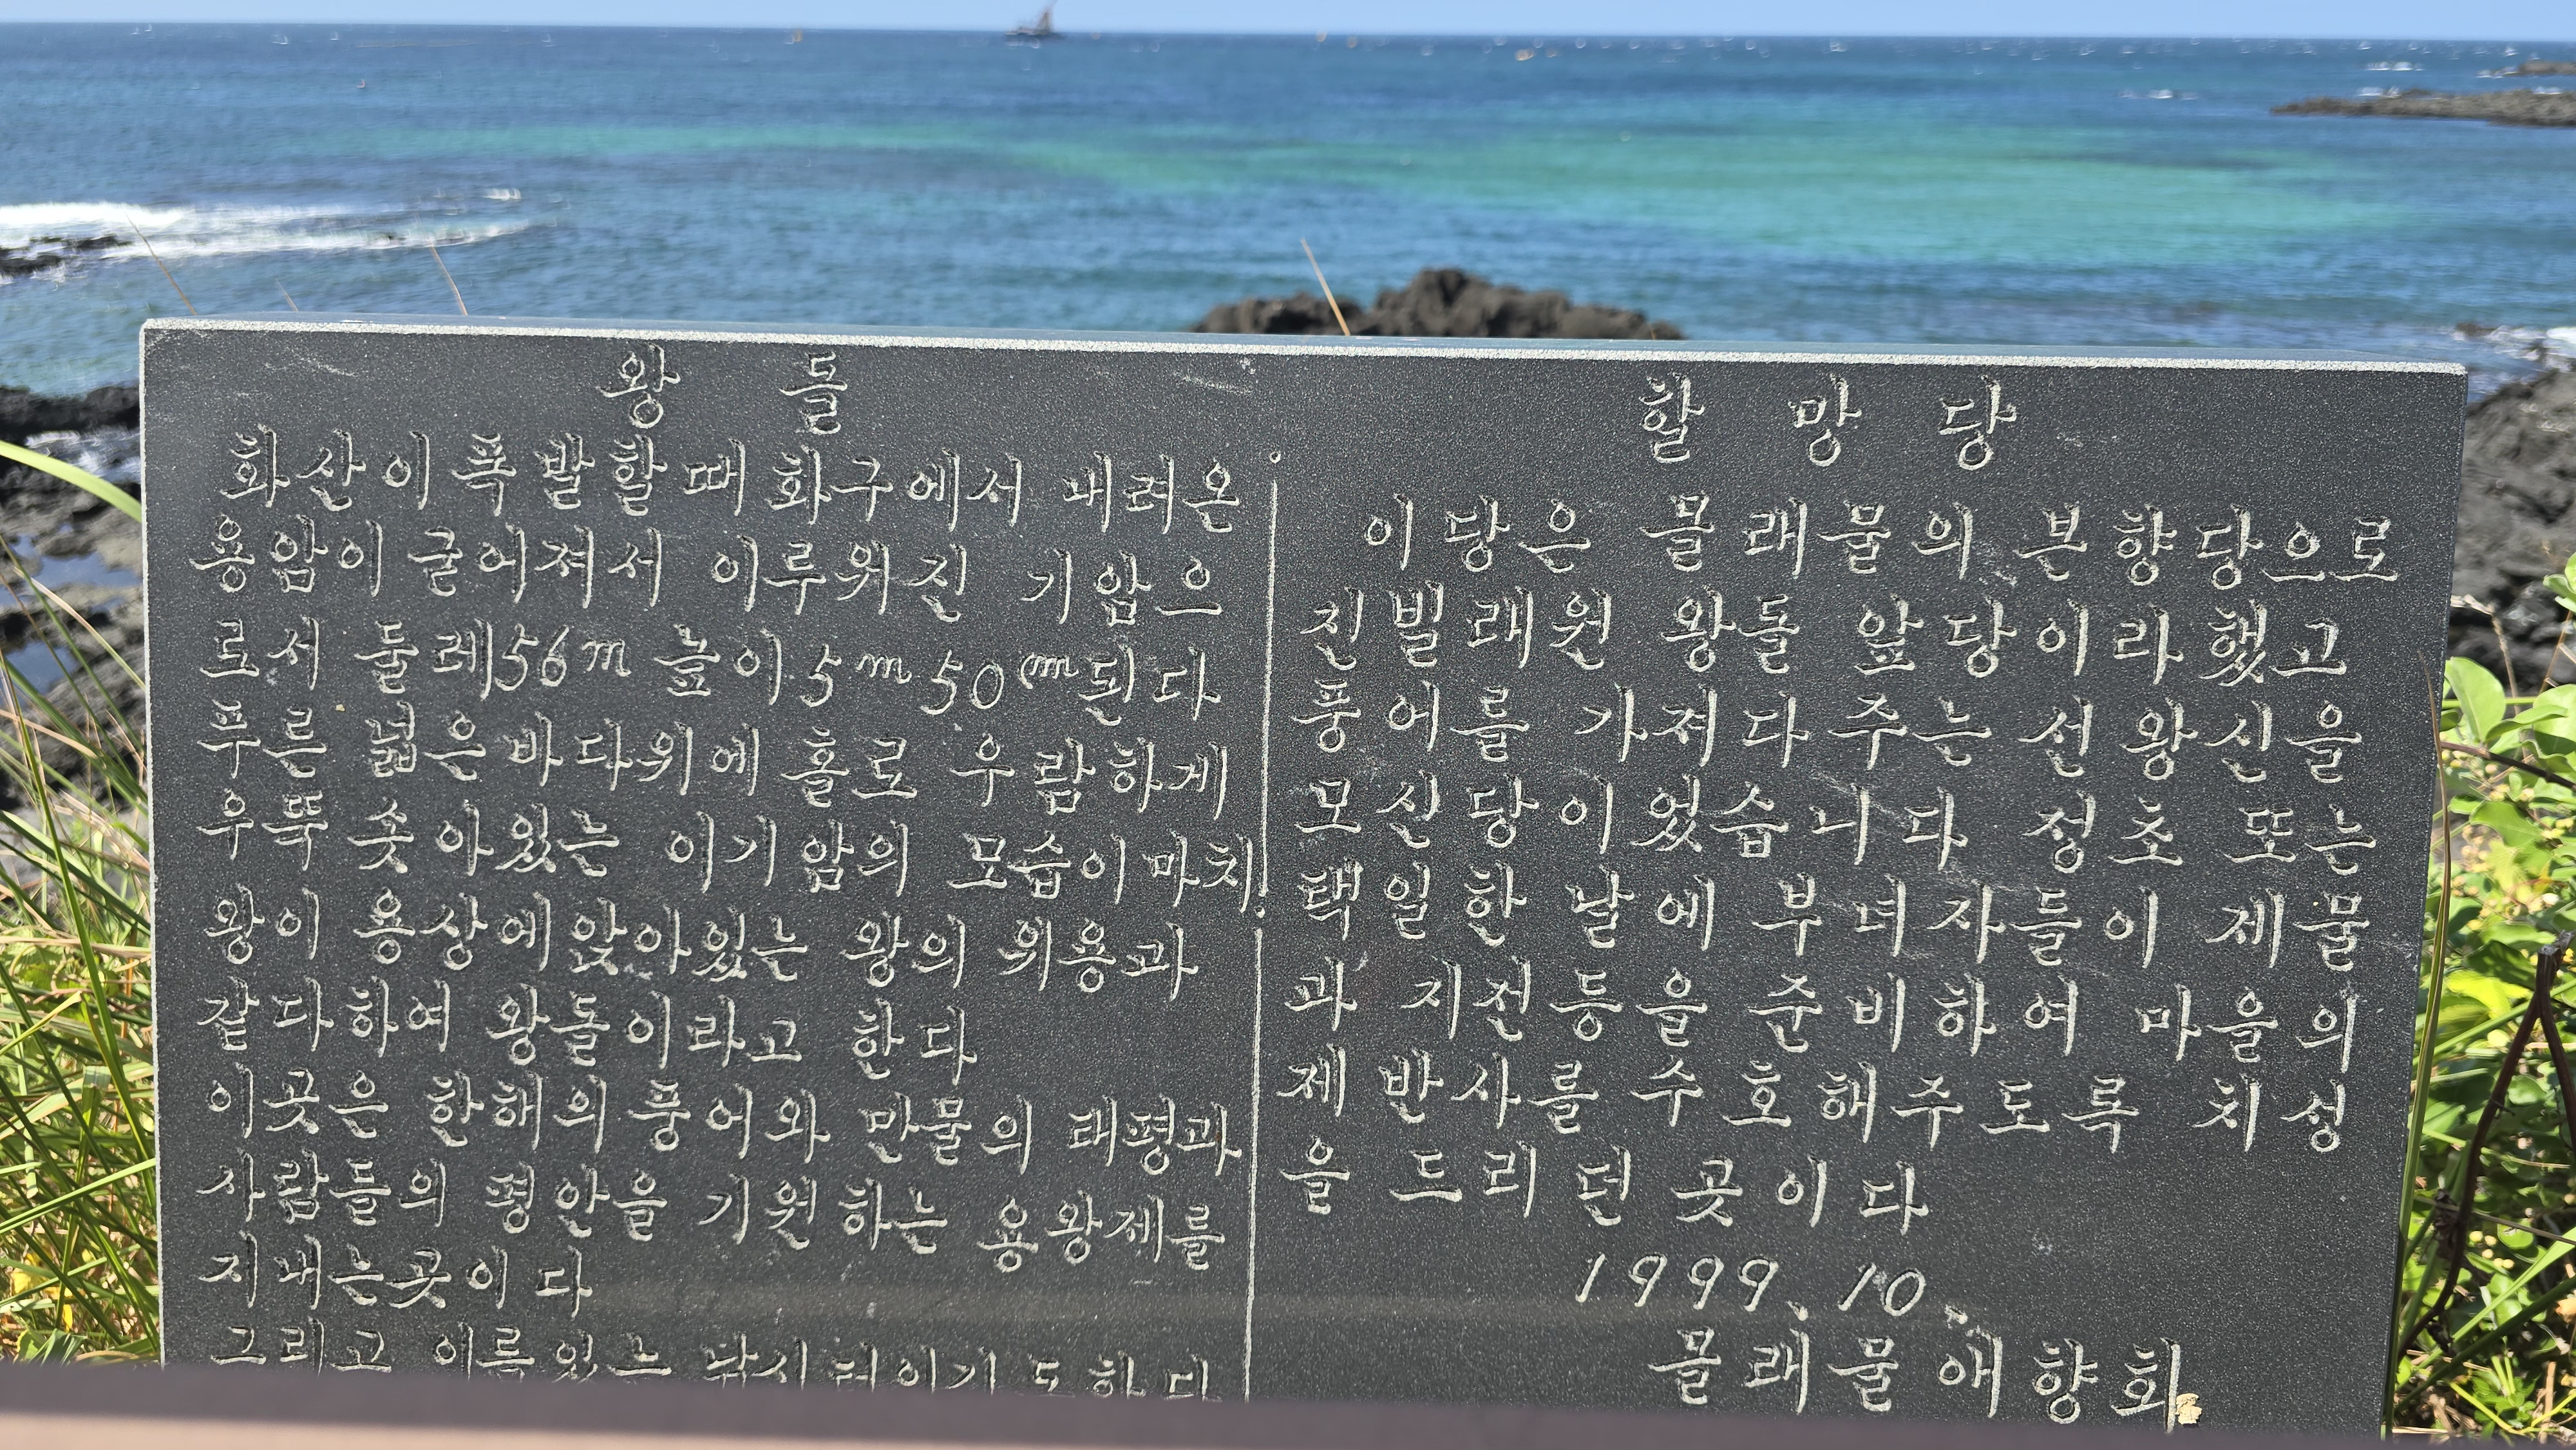 왕 돌
화산이 폭발할때 화구에서 내려온
용암이 굳어져서 이루워진 기암으
로서 둘레56m 높이5m50cm된다
푸른 넓은 바다위에 홀로 우람하게
우뚝 솟아있는 이기암의 모습이 마치
왕이 용상에앉아있는 왕의 위용과
같다하여 왕돌이라고 한다
이곳은 한해의 풍어와 만물의 태평과
사람들의 평안을 기원하는 용왕제를
지내는곳이다
그리고 이름있는 낚시터이기도하다
할 망 당
이당은 몰래물의 본향당으로
진빌래원 왕돌 앞당이라했고
풍어를 가져다주는 선왕신을
모신당이었습니다 정초 또는
택일한 날에 부녀자들이 제물
과 지전등을 준비하여 마을의
제반사를 수호해주도록 치성
을 드리던 곳이다
1999. 10.
몰래물애향회